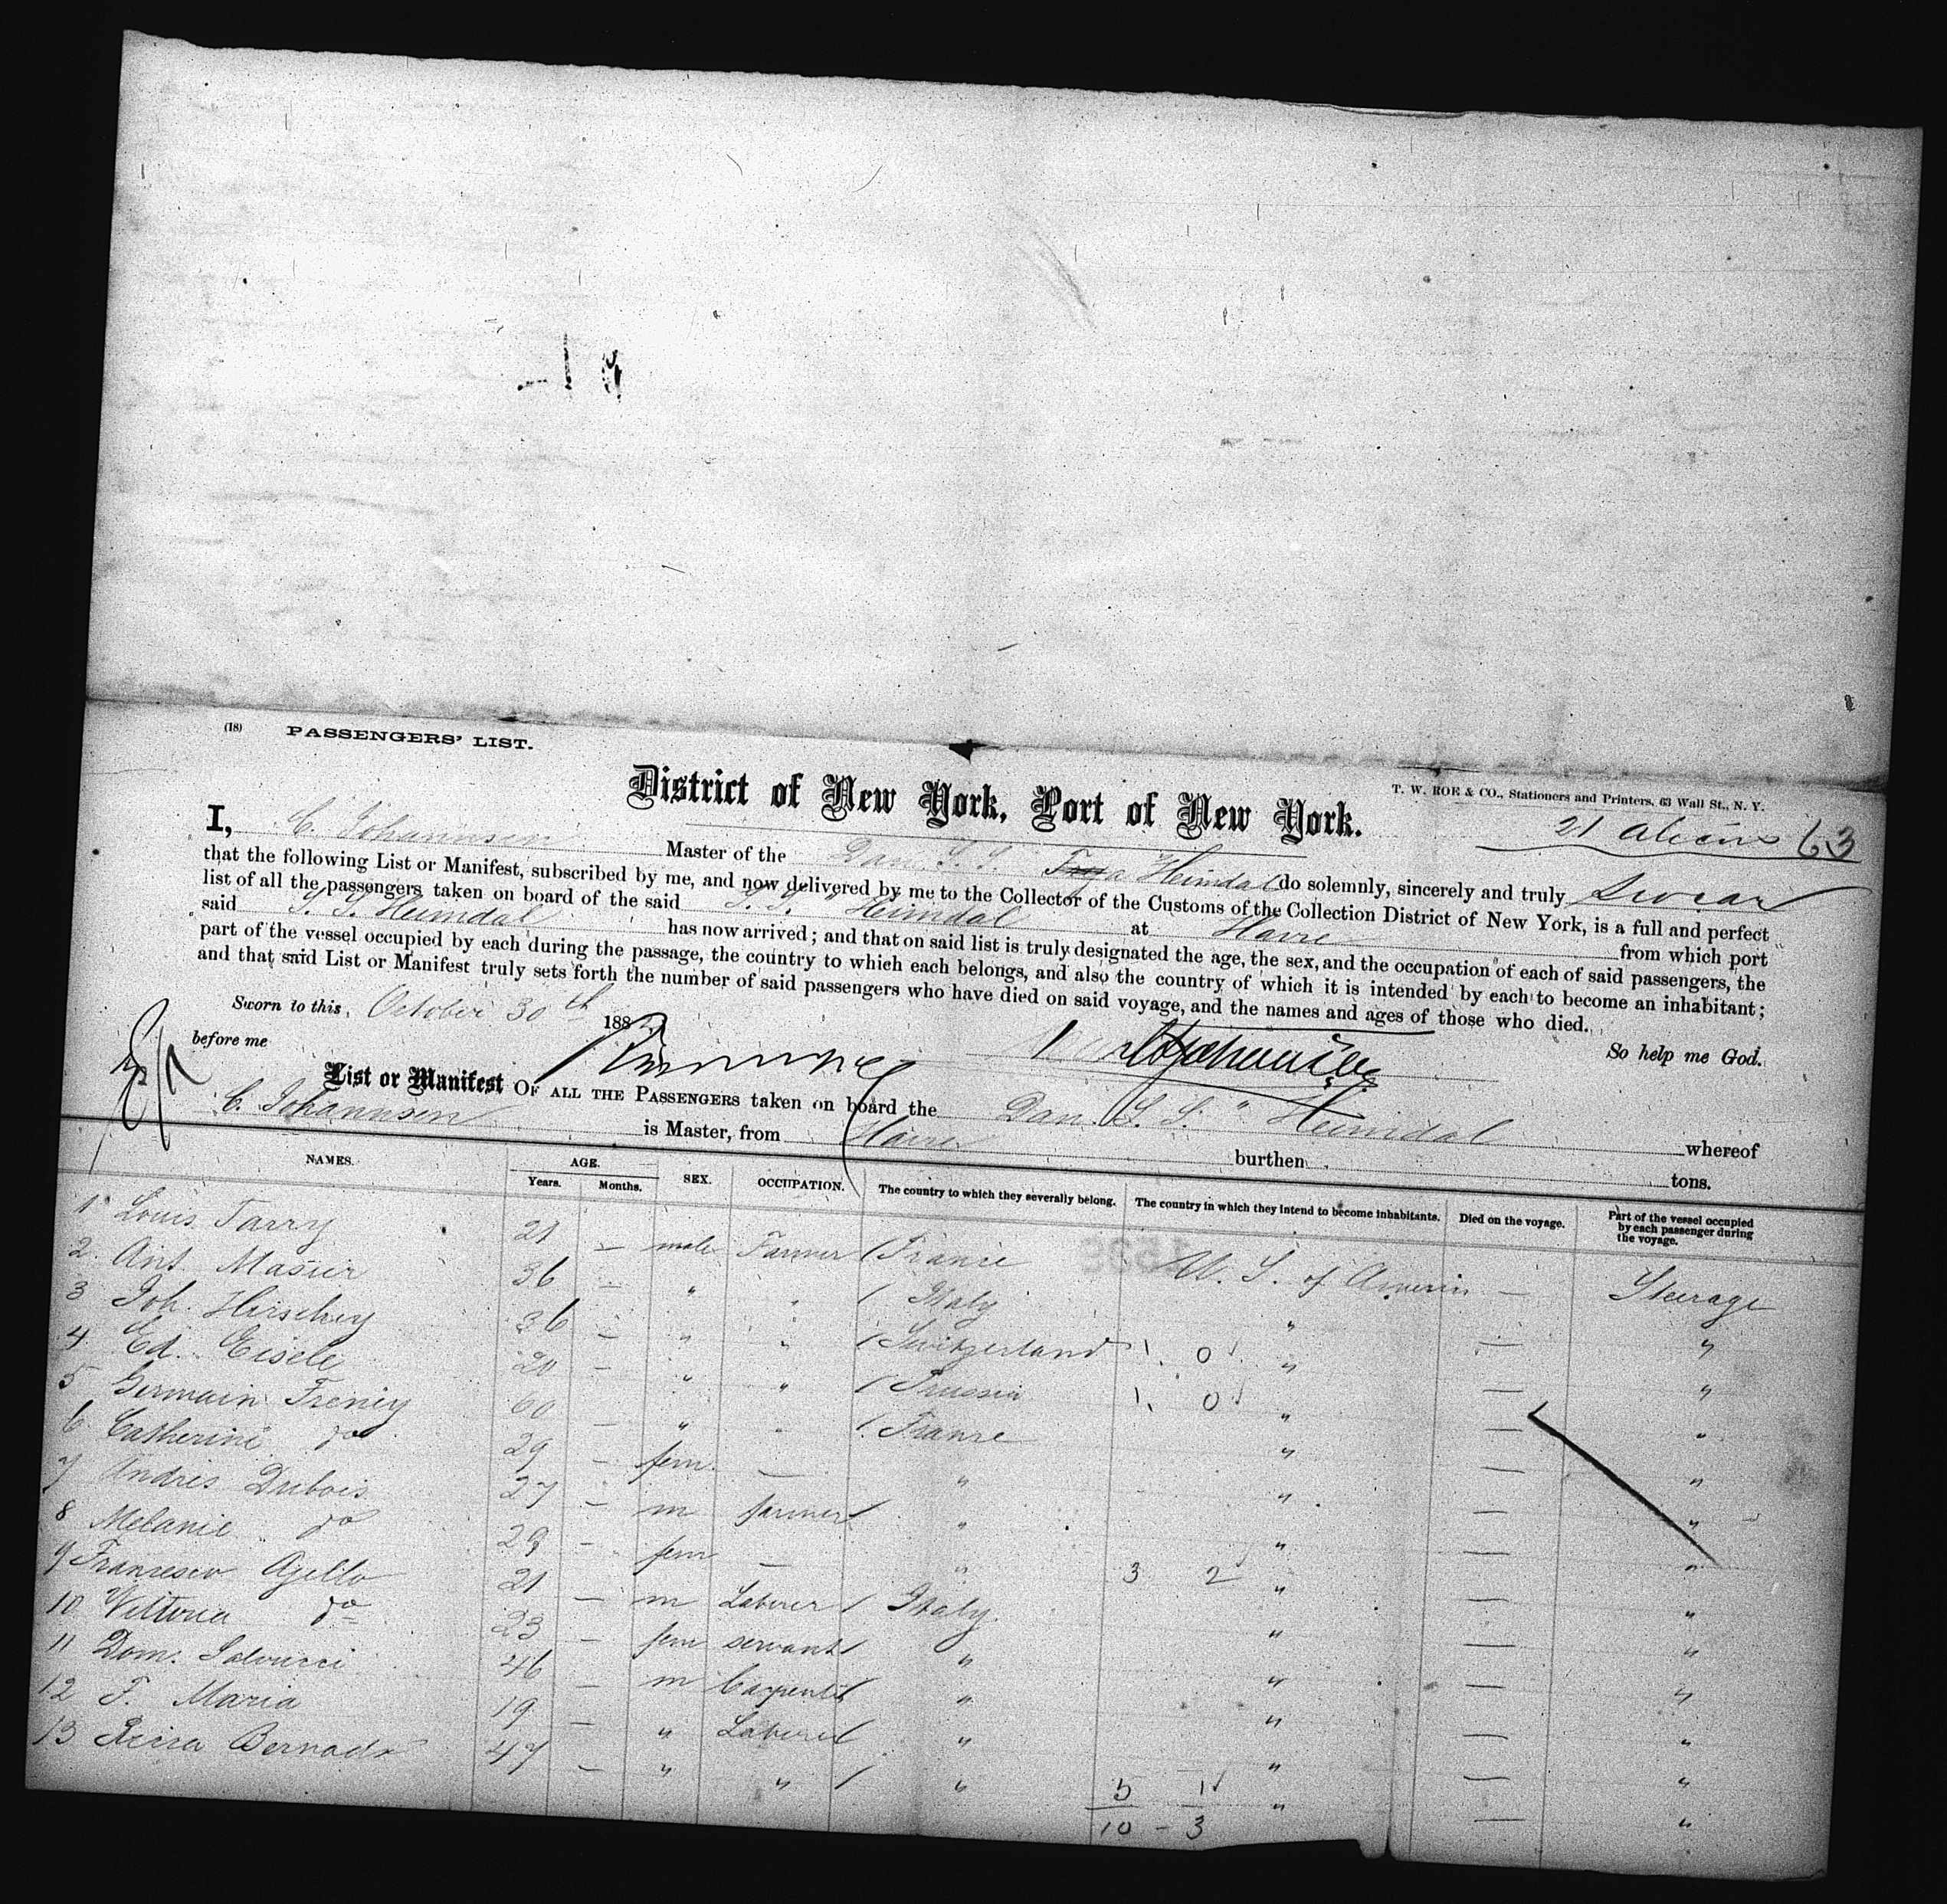 (18) PASSENGERS' LIST.
T. W. ROE & CO., Stationers and Printers, 63 Wall St., N. Y.
District of New York, Port of New York.
21 Aliens 63
I, C. Johannsen Master of the Dan. S. S. Heimdal do solemnly, sincerely and truly Swear
that the following List or Manifest, subscribed by me, and now delivered by me to the Collector of the Customs of the Collection District of New York, is a full and perfect
list of all the passengers taken on board of the said S. S. Heimdal at Havre from which port
said S. S. Heimdal has now arrived; and that on said list is truly designated the age, the sex, and the occupation of each of said passengers, the
part of the vessel occupied by each during the passage, the country to which each belongs, and also the country of which it is intended by each to become an inhabitant;
and that said List or Manifest truly sets forth the number of said passengers who have died on said voyage, and the names and ages of those who died.
Sworn to this October 30th 188
So help me God.
before me
List or Manifest OF ALL THE PASSENGERS taken on board the Dan. S. S. " Heimdal whereof
C. Johannsen is Master, from Havre burthen tons.
NAMES. AGE. Years. Months. SEX. OCCUPATION. The country to which they severally belong. The country in which they intend to become inhabitants. Died on the voyage. Part of the vessel occupied by each passenger during the voyage.
1 Louis Tarry 21 — male Farmer France U. S. of America — Steerage
2 Ant. Masier 36 — " " Italy " — "
3 Joh. Hirschey 36 — " " Switzerland 1 0 " — "
4 Ed. Eisele 20 — " " Prussia 1 0 " — "
5 Germain Freniy 60 — " " France " — "
6 Catherine do 29 — fem — " " — "
7 Andres Dubois 27 — m farmer " " — "
8 Melanie do 29 — fem — " 3 2 " — "
9 Francesco Ajello 21 — m Laborer Italy " — "
10 Vittoria do 23 — fem servant " " — "
11 Dom. Salvucci 46 — m Carpenter " " — "
12 F. Maria 19 — " Laborer " " — "
13 Bernado 47 — " " " 5 1 " — "
10 - 3